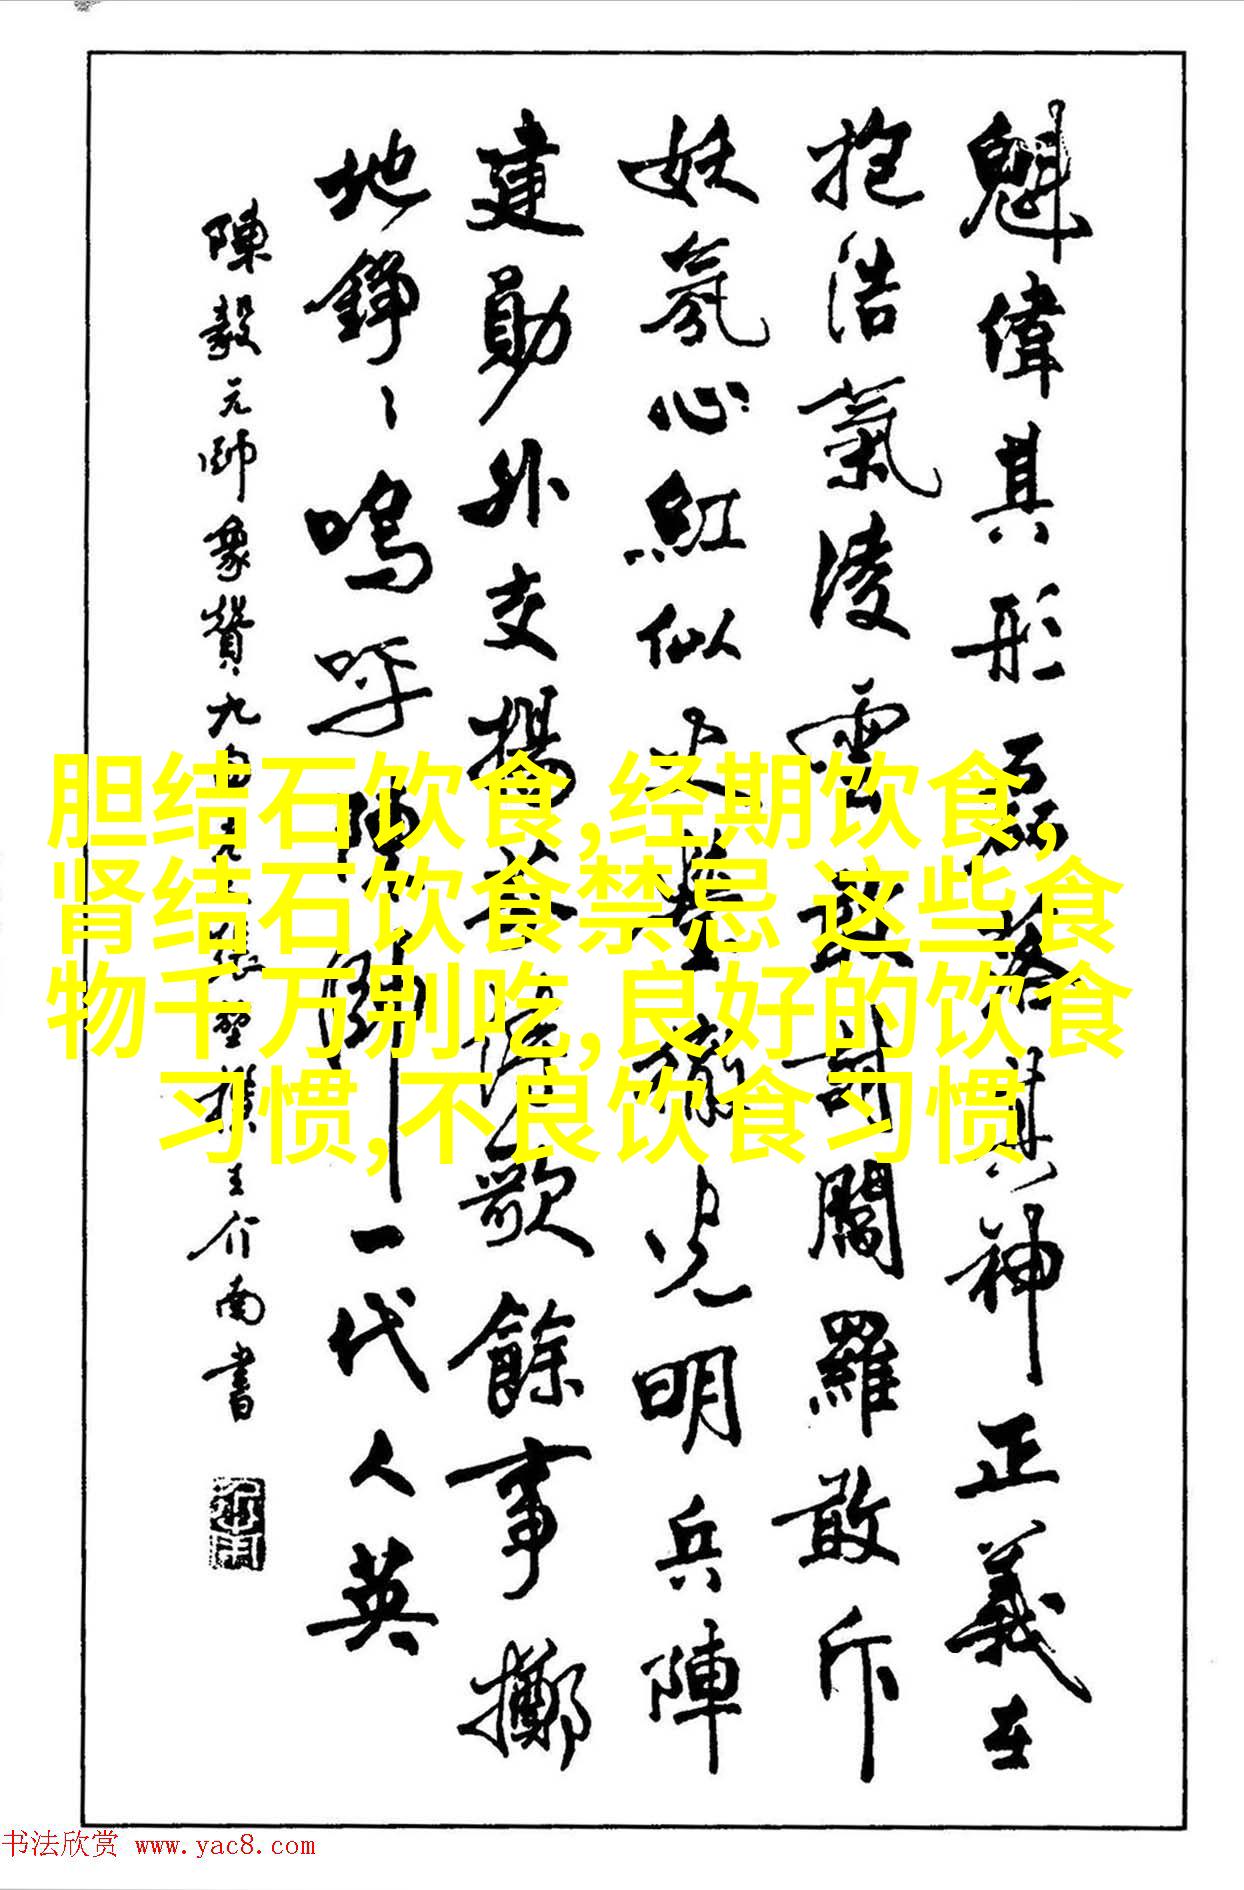 魁偉其形磊落其神正義在
抱浩氣凌雲討閻羅敢斥
妖氛心紅似火光明兵陣
建勛外交揚歌餘事擲
地錚〻嗚呼陳一代人英
陳毅元帥象贊九撰王介南書
胆结石饮食,经期饮食,
肾结石饮食禁忌 这些食
物千万别吃,良好的饮食
习惯,不良饮食习惯
书法欣赏 www.yac8.com